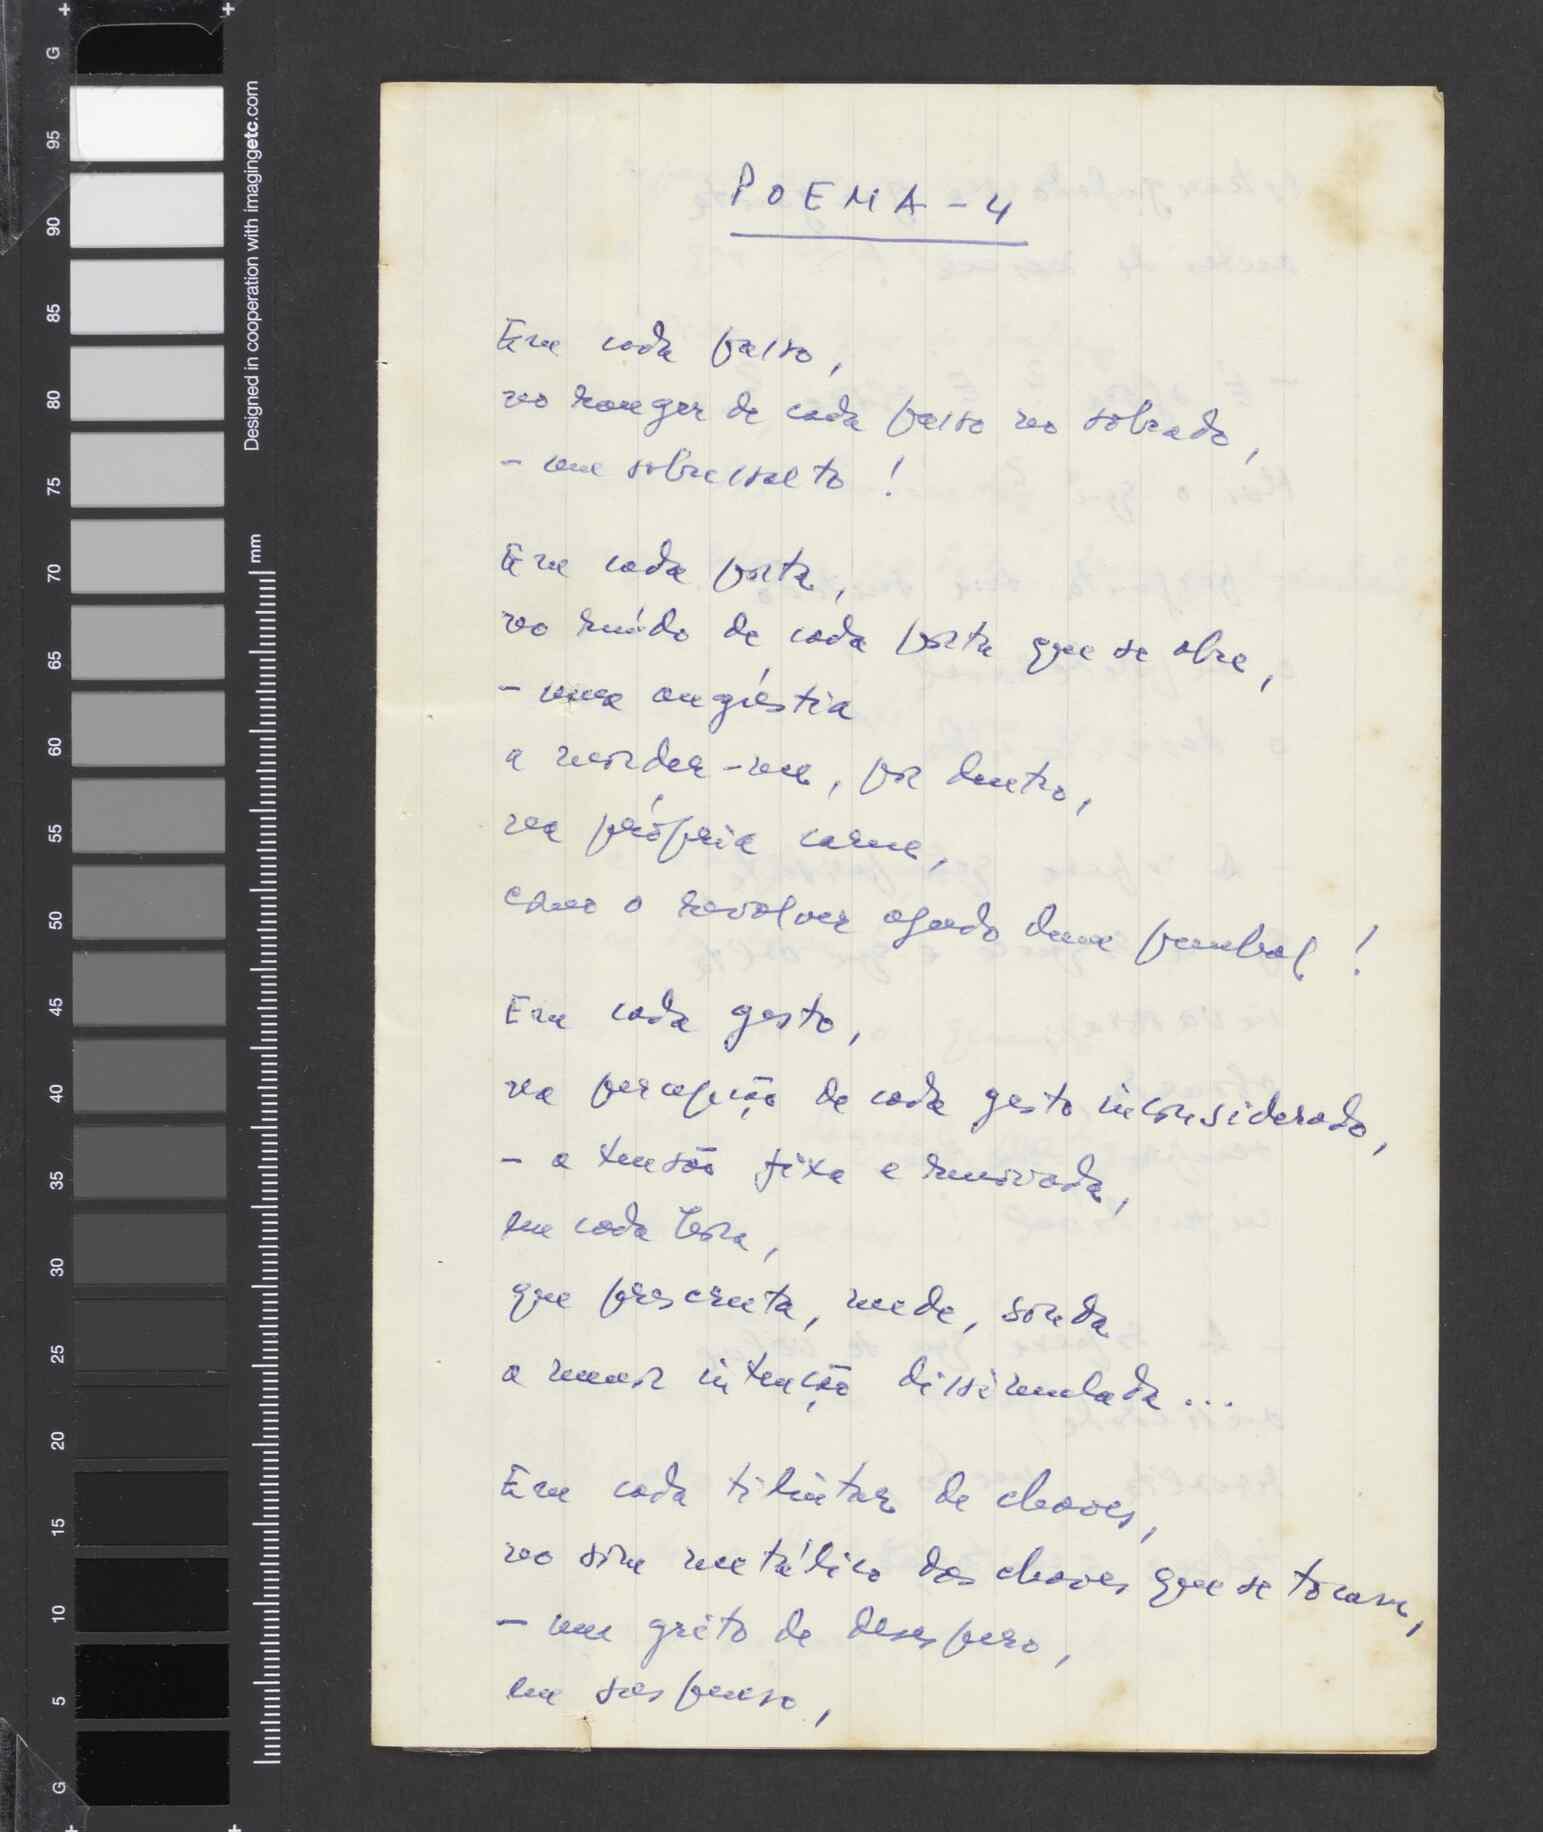 G
95
90
85
80
75
70
65
60
55
50
45
40
35
30
25
20
15
10
5
G
Designed in cooperation with imagingetc.com
mm
POEMA - 4
Em cada passo,
no ranger de cada passo no sobrado,
- um sobressalto !
Em cada porta,
no ruído de cada porta que se abre,
- uma angústia
a morder-me, por dentro,
na própria carne,
como o revolver agudo dum punhal !
Em cada gesto,
na percepção de cada gesto inconsiderado,
- a tensão fixa e renovada,
em cada hora,
que prescruta, mede, sonda
a menor intenção dissimulada ...
Em cada tilintar de chaves,
no som metálico das chaves que se tocam,
- um grito de desespero,
em suspenso,